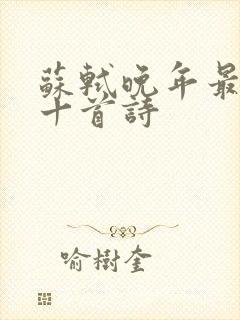 蘇軾晚年最
十首詩
喻樹奎